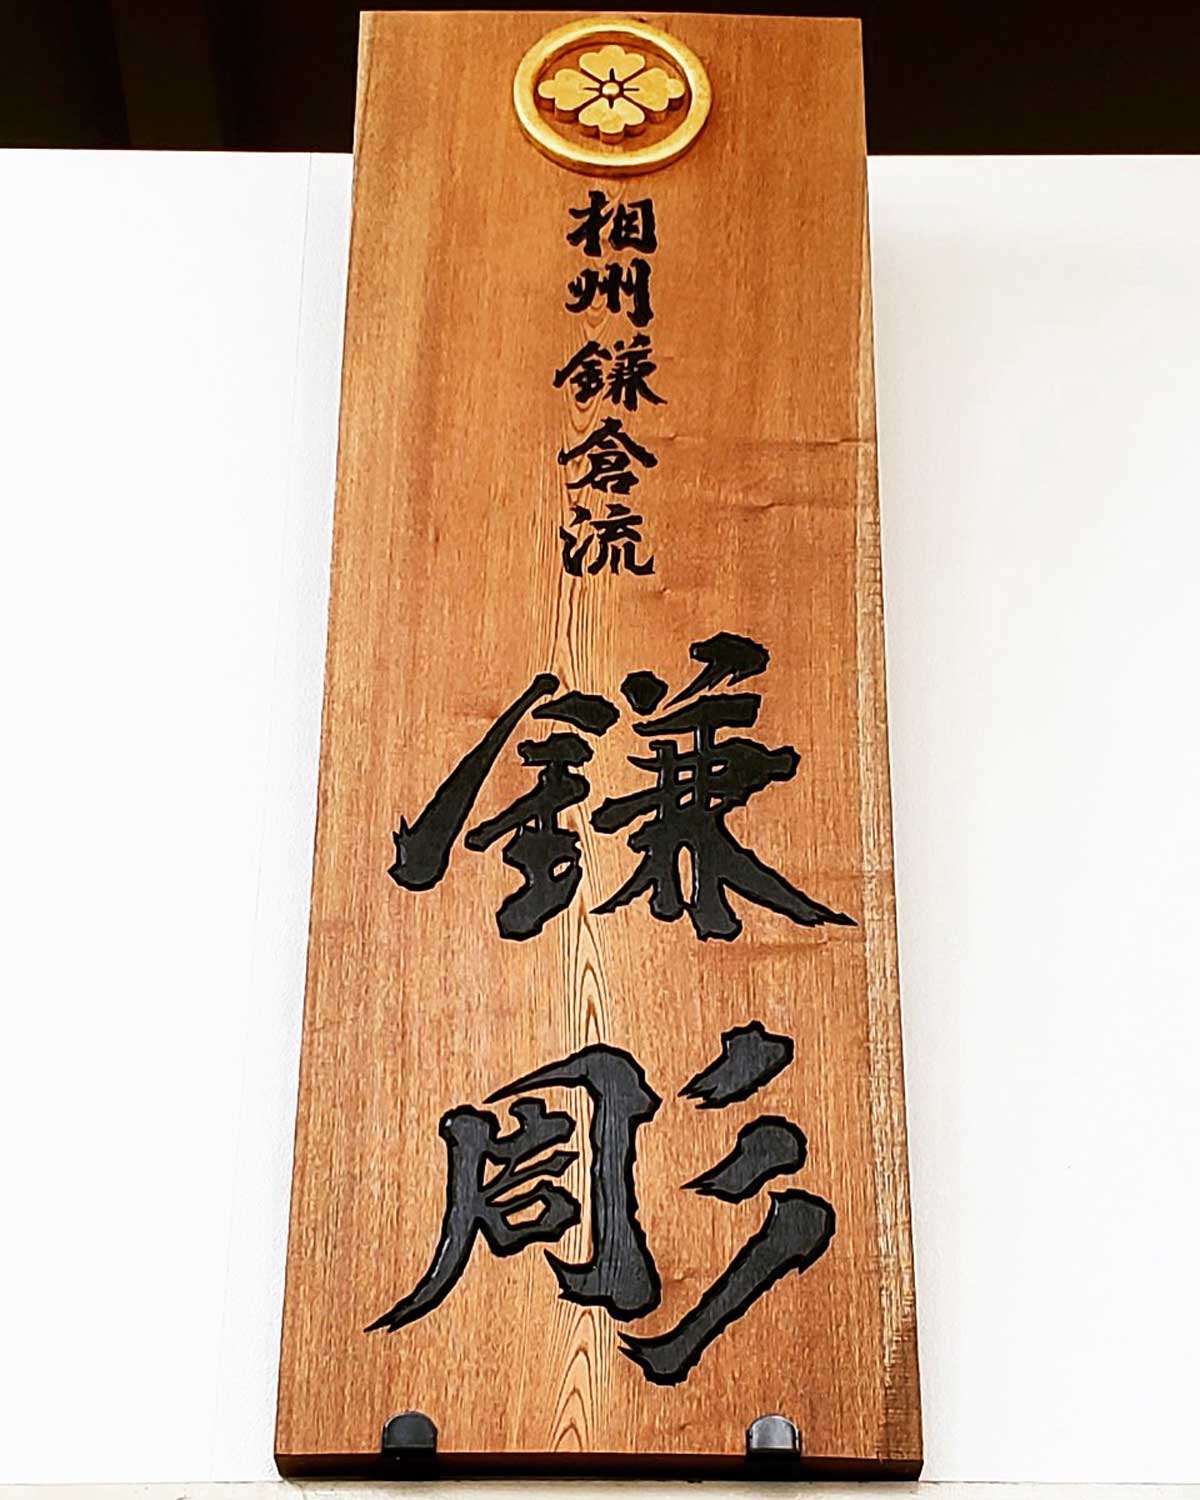 相州鎌倉流
鎌彫